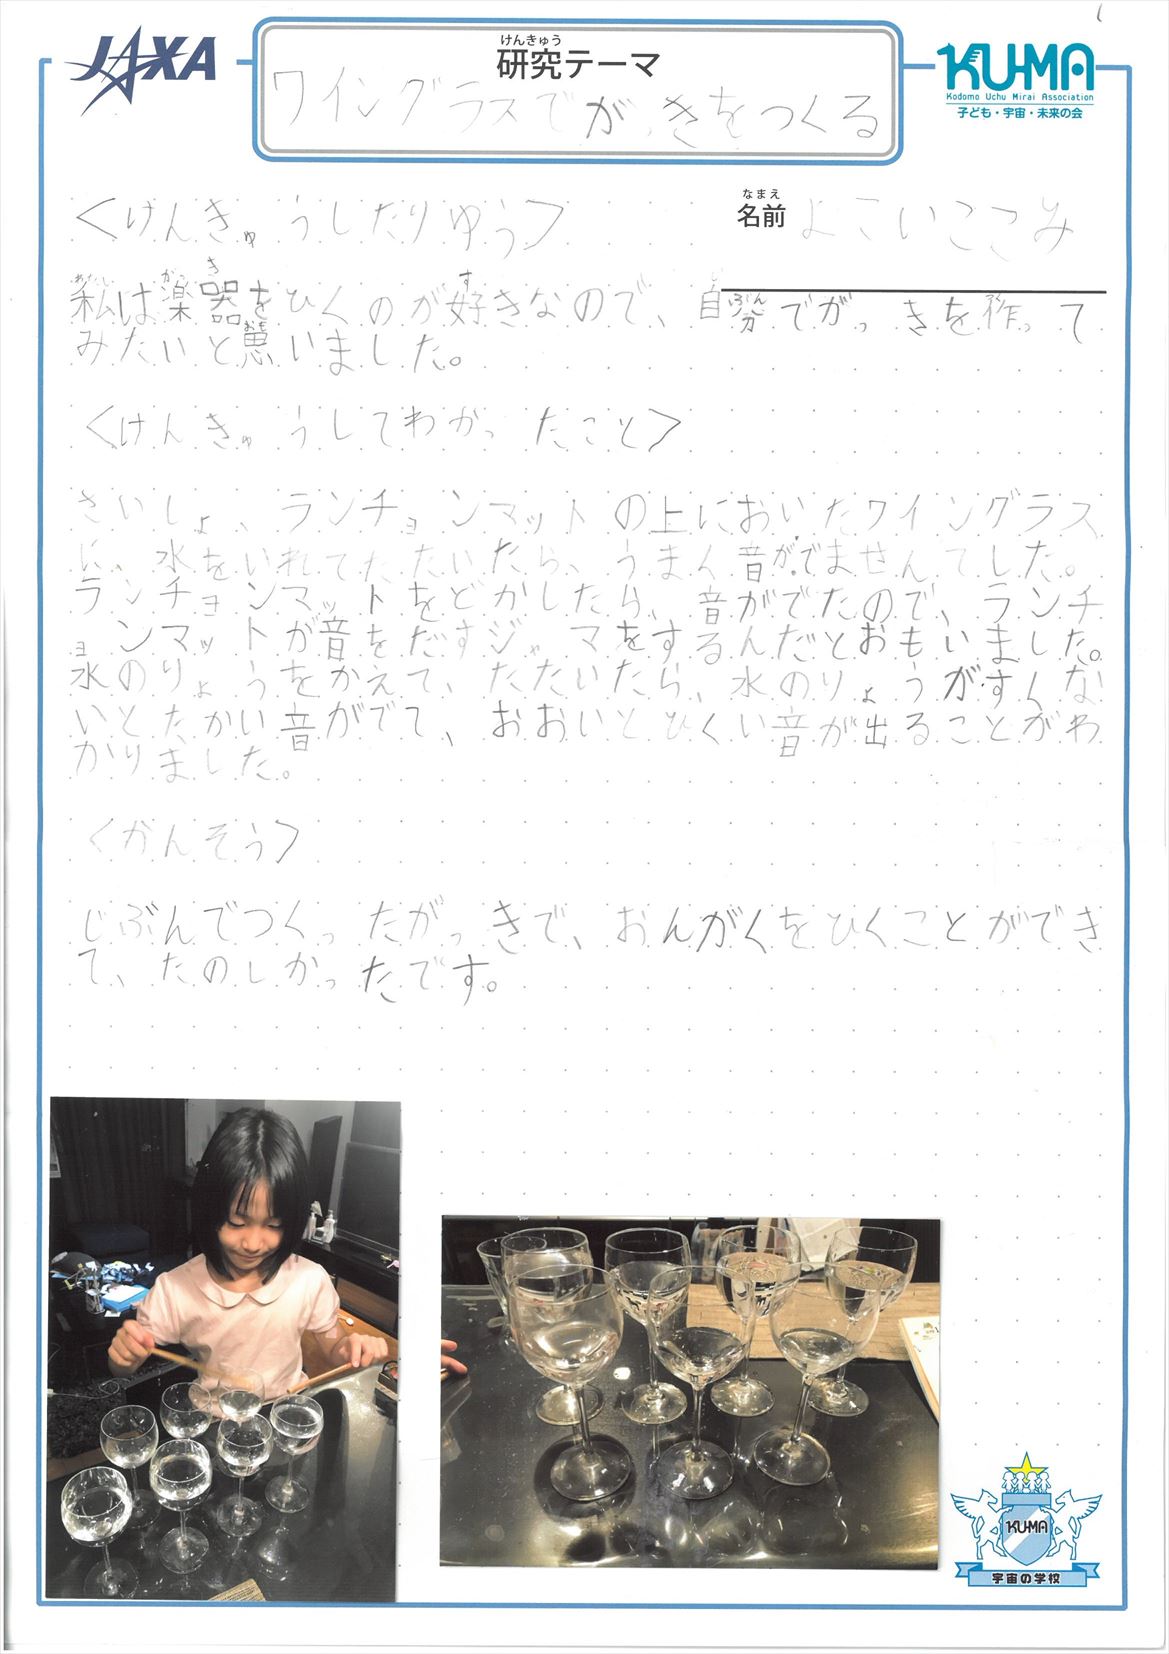 JAXA
けんきゅう
研究テーマ
KUMA
Kodomo Uchu Mirai Association
子ども・宇宙・未来の会
ワイングラスでがっきをつくる
<けんきゅうしたりゆう>
なまえ
名前 よこいここみ
わたし がっ き す じ ぶん つく
私は楽器をひくのが好きなので、自分でがっきを作って
おも
みたいと思いました。
<けんきゅうしてわかったこと>
さいしょ、ランチョンマットの上においたワイングラス
に、水をいれてたたいたら、うまく音がでませんでした。
ランチョンマットをどかしたら、音がでたので、ランチ
ョンマットが音をだすジャマをするんだとおもいました。
水のりょうをかえて、たたいたら、水のりょうがすくな
いとたかい音がでて、おおいとひくい音が出ることがわ
かりました。
<かんそう>
じぶんでつくったがっきで、おんがくをひくことができ
て、たのしかったです。
KUMA
宇宙の学校